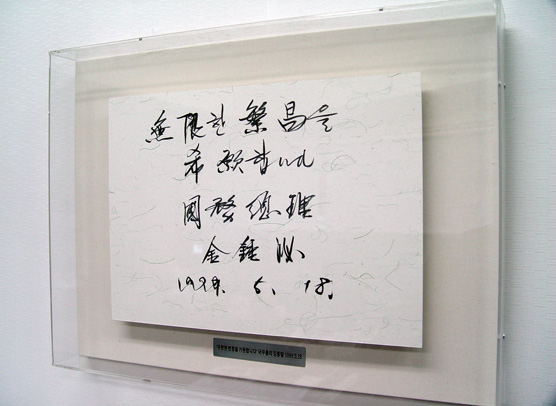 無限한 繁昌을
希願합니다
國務總理
金鍾泌
1999. 5. 18.